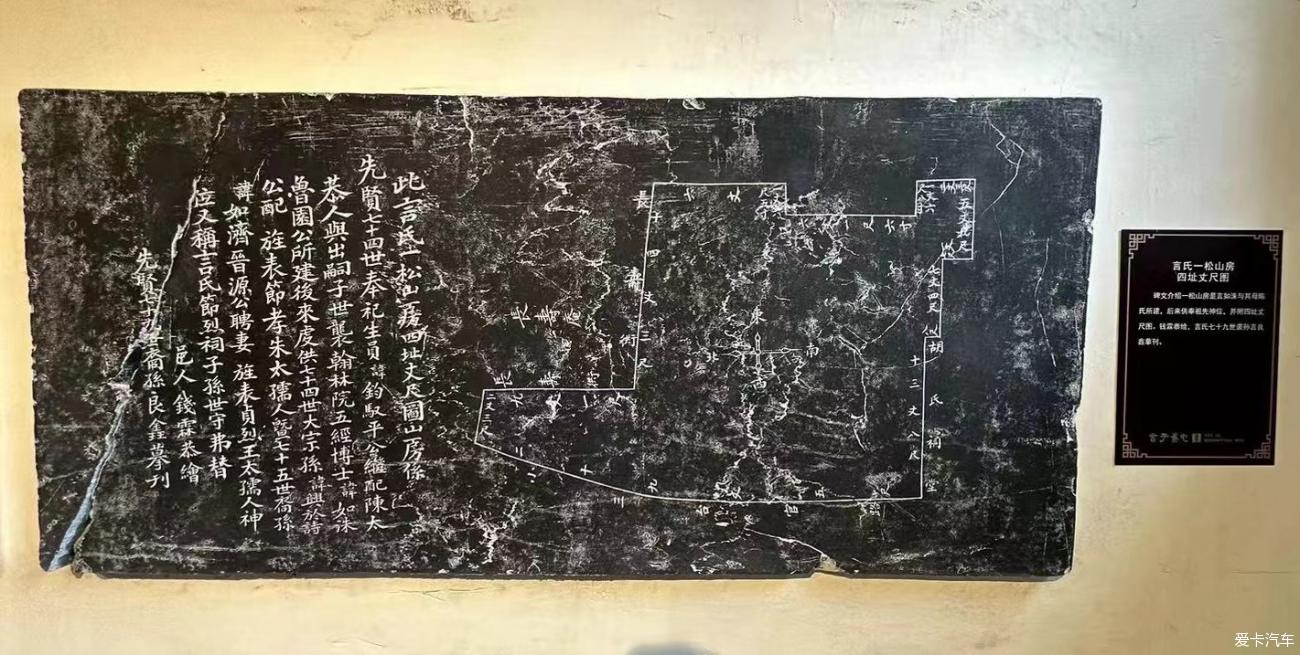 此言氏一松山房四址丈尺圖山房係
先賢七十四世奉祀生員諱鈞馭平公繼配陳太
恭人與出嗣子世襲翰林院五經博士諱如洙
魯園公所建後來虔供七十四世大宗孫諱興於詩
公配旌表節孝朱太孺人暨七十五世裔孫
諱如濟晉源公聘妻旌表貞烈王太孺人神
位又稱言氏節烈祠子孫世守弗替
邑人錢霖恭繪
先賢七十九世裔孫良鑫摹刊
長壽庵
長十四丈三尺
壽
術
東
南
西
北
七丈四尺
胡氏祠堂
十三丈八尺
言氏一松山房
四址丈尺图
碑文介绍一松山房是言如洙与其母陈
氏所建，后来供奉祖先神位，并附四址丈
尺图。钱霖恭绘，言氏七十九世裔孙言良
鑫摹刊。
言子旧宅
爱卡汽车